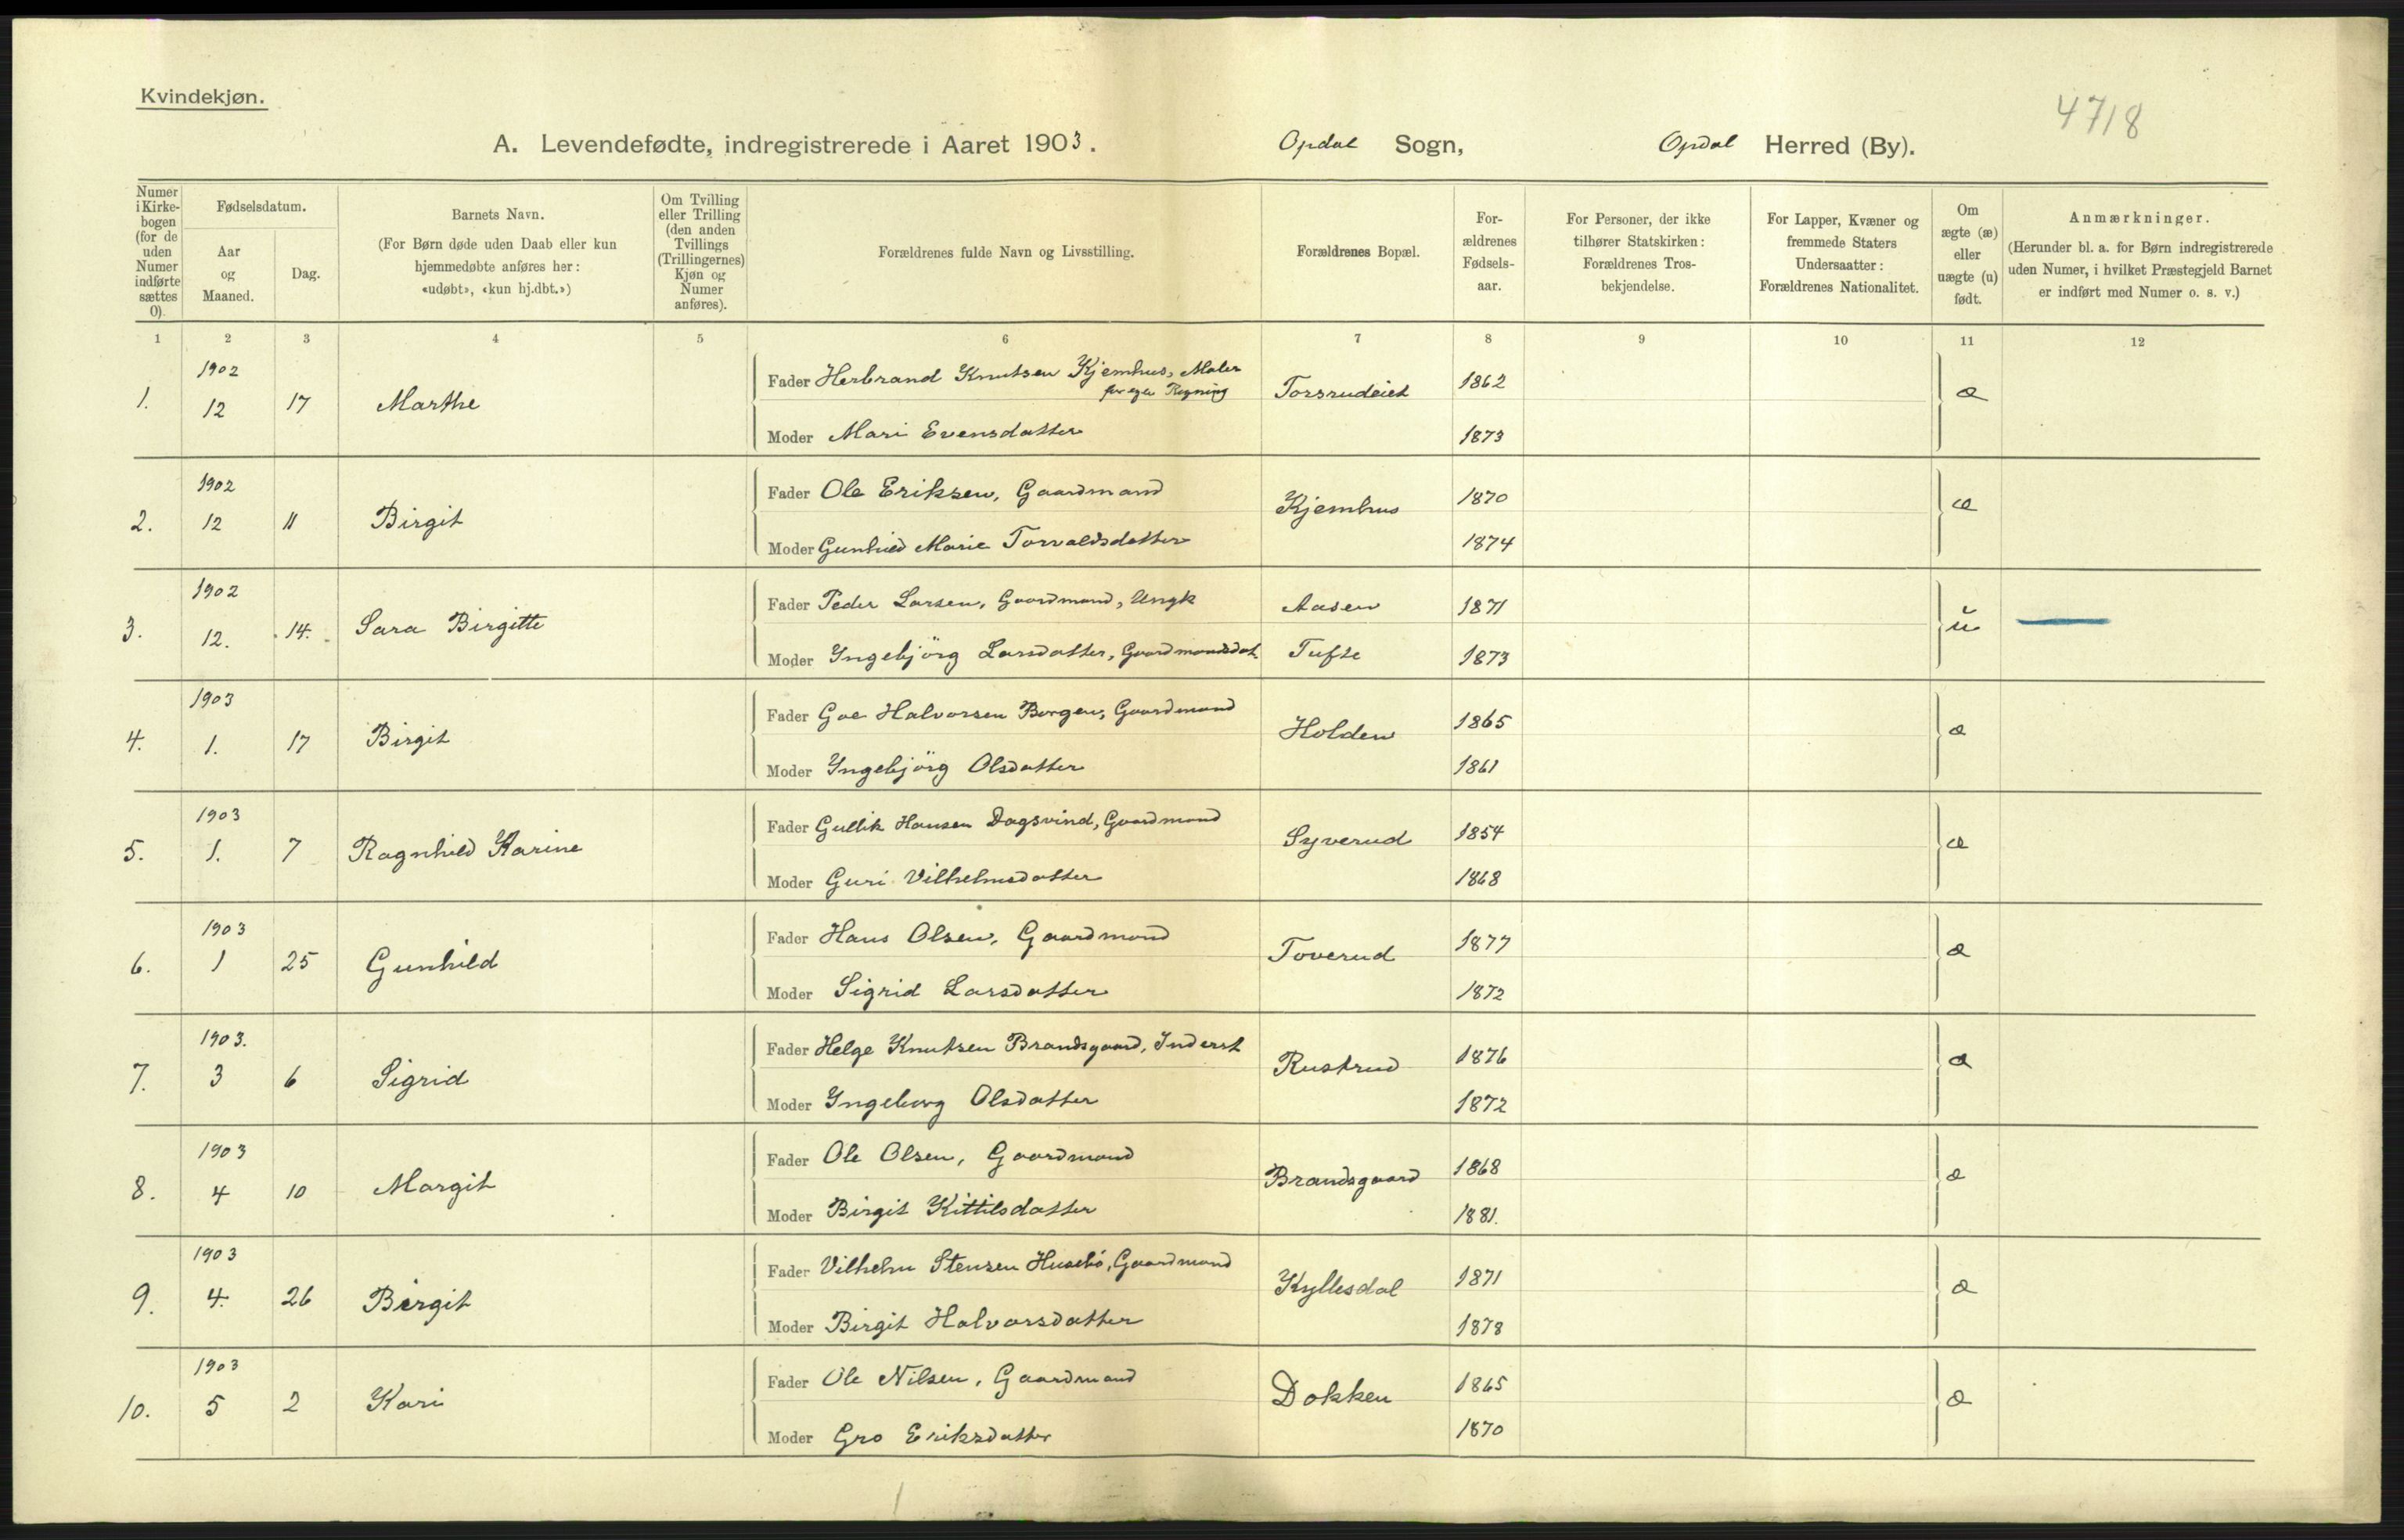 Kvindekjøn.
4718
A. Levendefødte, indregistrerede i Aaret 1903. Opdal Sogn, Opdal Herred (By).
Numer i Kirke-bogen (for de uden Numer indførte sættes 0).
Fødselsdatum.
Aar og Maaned.
Dag.
Barnets Navn.
(For Børn døde uden Daab eller kun hjemmedøbte anføres her: «udøbt», «kun hj.dbt.»)
Om Tvilling eller Trilling (den anden Tvillings (Trillingernes) Kjøn og Numer anføres).
Forældrenes fulde Navn og Livsstilling.
Forældrenes Bopæl.
For-ældrenes Fødsels-aar.
For Personer, der ikke tilhører Statskirken: Forældrenes Tros-bekjendelse.
For Lapper, Kvæner og fremmede Staters Undersaatter: Forældrenes Nationalitet.
Om ægte (æ) eller uægte (u) født.
Anmærkninger.
(Herunder bl. a. for Børn indregistrerede uden Numer, i hvilket Præstegjeld Barnet er indført med Numer o. s. v.)
1 2 3 4 5 6 7 8 9 10 11 12
1. 1902 12 17 Marthe Fader Herbrand Knutsen Kjemhus, Maler for egen Regning Torsrudeiet 1862 æ
Moder Mari Evensdatter 1873
2. 1902 12 11 Birgit Fader Ole Eriksen, Gaardmand Kjemhus 1870 æ
Moder Gunhild Marie Torvaldsdatter 1874
3. 1902 12. 14. Sara Birgitte Fader Peder Larsen, Gaardmand, Ungk Aasen 1871 u
Moder Ingebjörg Larsdatter, Gaardmandsdat. Tufte 1873
4. 1903 1. 17 Birgit Fader Goe Halvorsen Borgen, Gaardmand Holden 1865 æ
Moder Ingebjörg Olsdatter 1861
5. 1903 1. 7 Ragnhild Karine Fader Gullik Hansen Dagsvind, Gaardmand Syverud 1854 æ
Moder Guri Vilhelmsdatter 1868
6. 1903 1 25 Gunhild Fader Hans Olsen, Gaardmand Toverud 1877 æ
Moder Sigrid Larsdatter 1872
7. 1903. 3 6 Sigrid Fader Helge Knutsen Brandsgaard, Inderst Rustrud 1876 æ
Moder Ingeborg Olsdatter 1872
8. 1903 4 10 Margit Fader Ole Olsen, Gaardmand Brandsgaard 1868 æ
Moder Birgit Kittilsdatter 1881.
9. 1903 4. 26 Birgit Fader Vilhelm Stensen Husebö, Gaardmand Kyllesdal 1871 æ
Moder Birgit Halvorsdatter 1878
10. 1903 5 2 Kari Fader Ole Nilsen, Gaardmand Dokken 1865 æ
Moder Gro Eriksdatter 1870